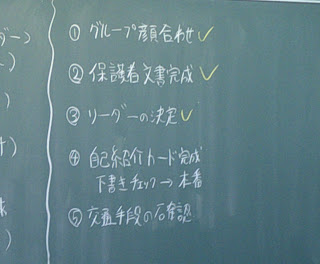 ダー)
① グループ顔合わせ✓
② 保護者文書完成✓
③ リーダーの決定✓
④ 自己紹介カード完成
下書きチェック→本番
⑤ 交通手段の確認